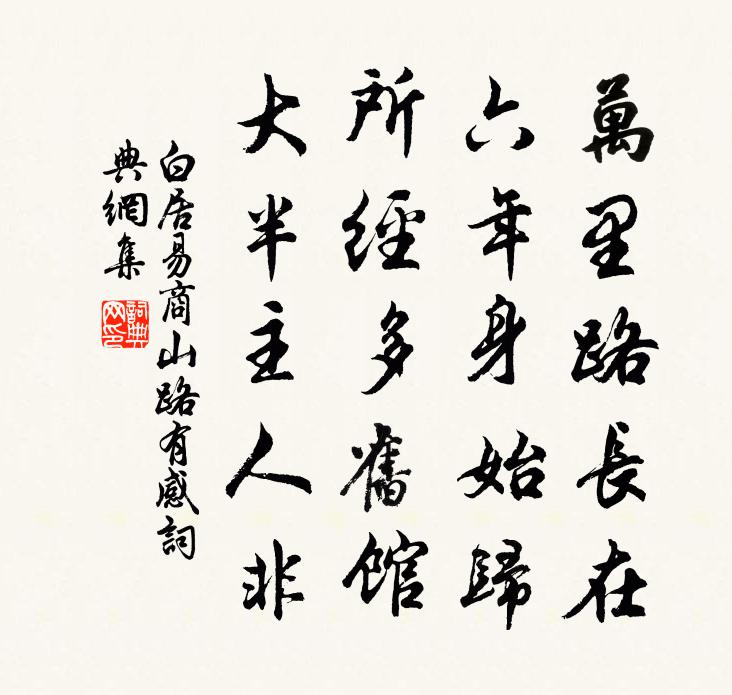 萬里路長在
六年身始歸
所經多舊館
大半主人非
白居易商山路有感詞
典網集
詞典
网印